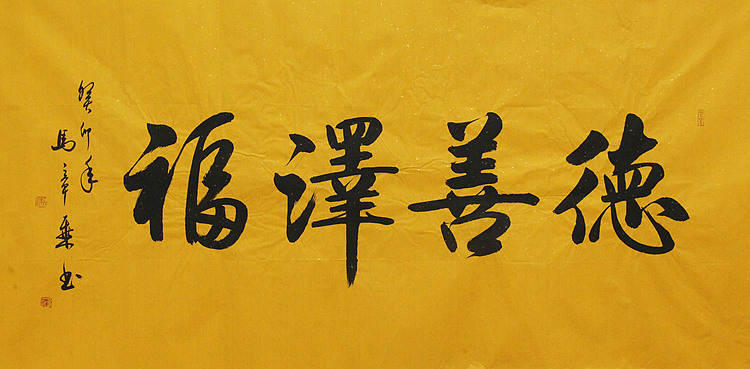 德善澤福
癸卯年
馬章乘书